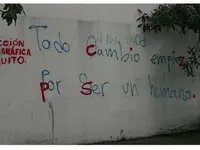 CCIÓN
GRÁFICA
UITO.
Todo cambio empieza
por ser un humano.